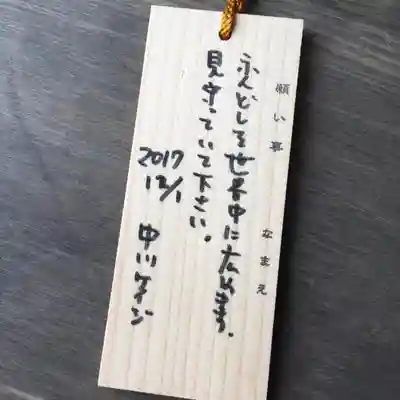 願い事
なまえ
ふんどしを世界中に広めます。
見守っていて下さい。
2017
12/1
中川ケイジ